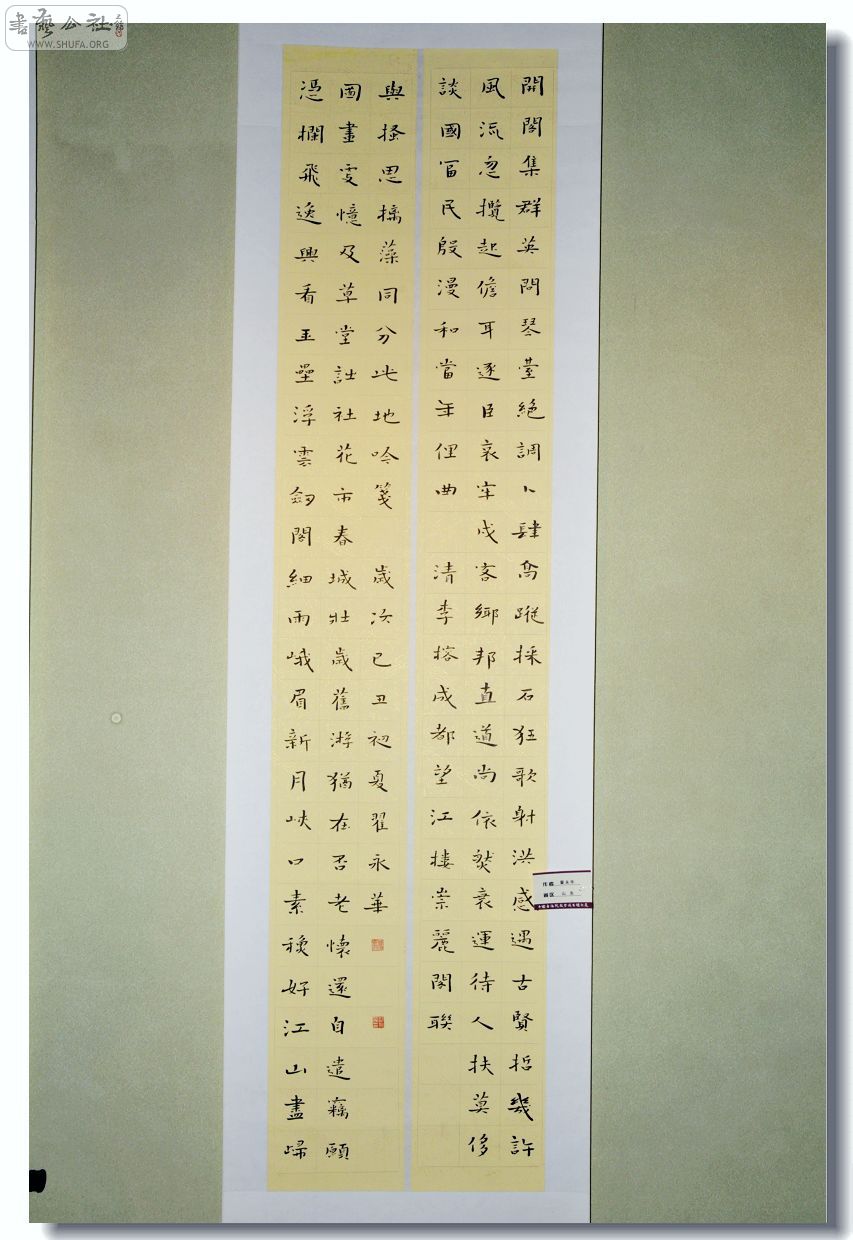 書藝公社
WWW.SHUFA.ORG
開閣集群英問琴臺絕調卜肆高蹤採石狂歌射洪感遇古賢哲幾許
風流忽攬起儋耳逐臣哀牢戍客鄉邦直道尚依然衰運待人扶莫侈
談國富民殷漫和當年俚曲 清李榕成都望江樓崇麗閣聯
憑欄飛逸興看玉壘浮雲劍閣細雨峨眉新月峽口素穐好江山盡歸
圖畫更憶及草堂詩社花市春城壯歲舊游猶在否老懷還自遣竊願
與搔思摛藻同分此地吟箋 歲次己丑初夏翟永華